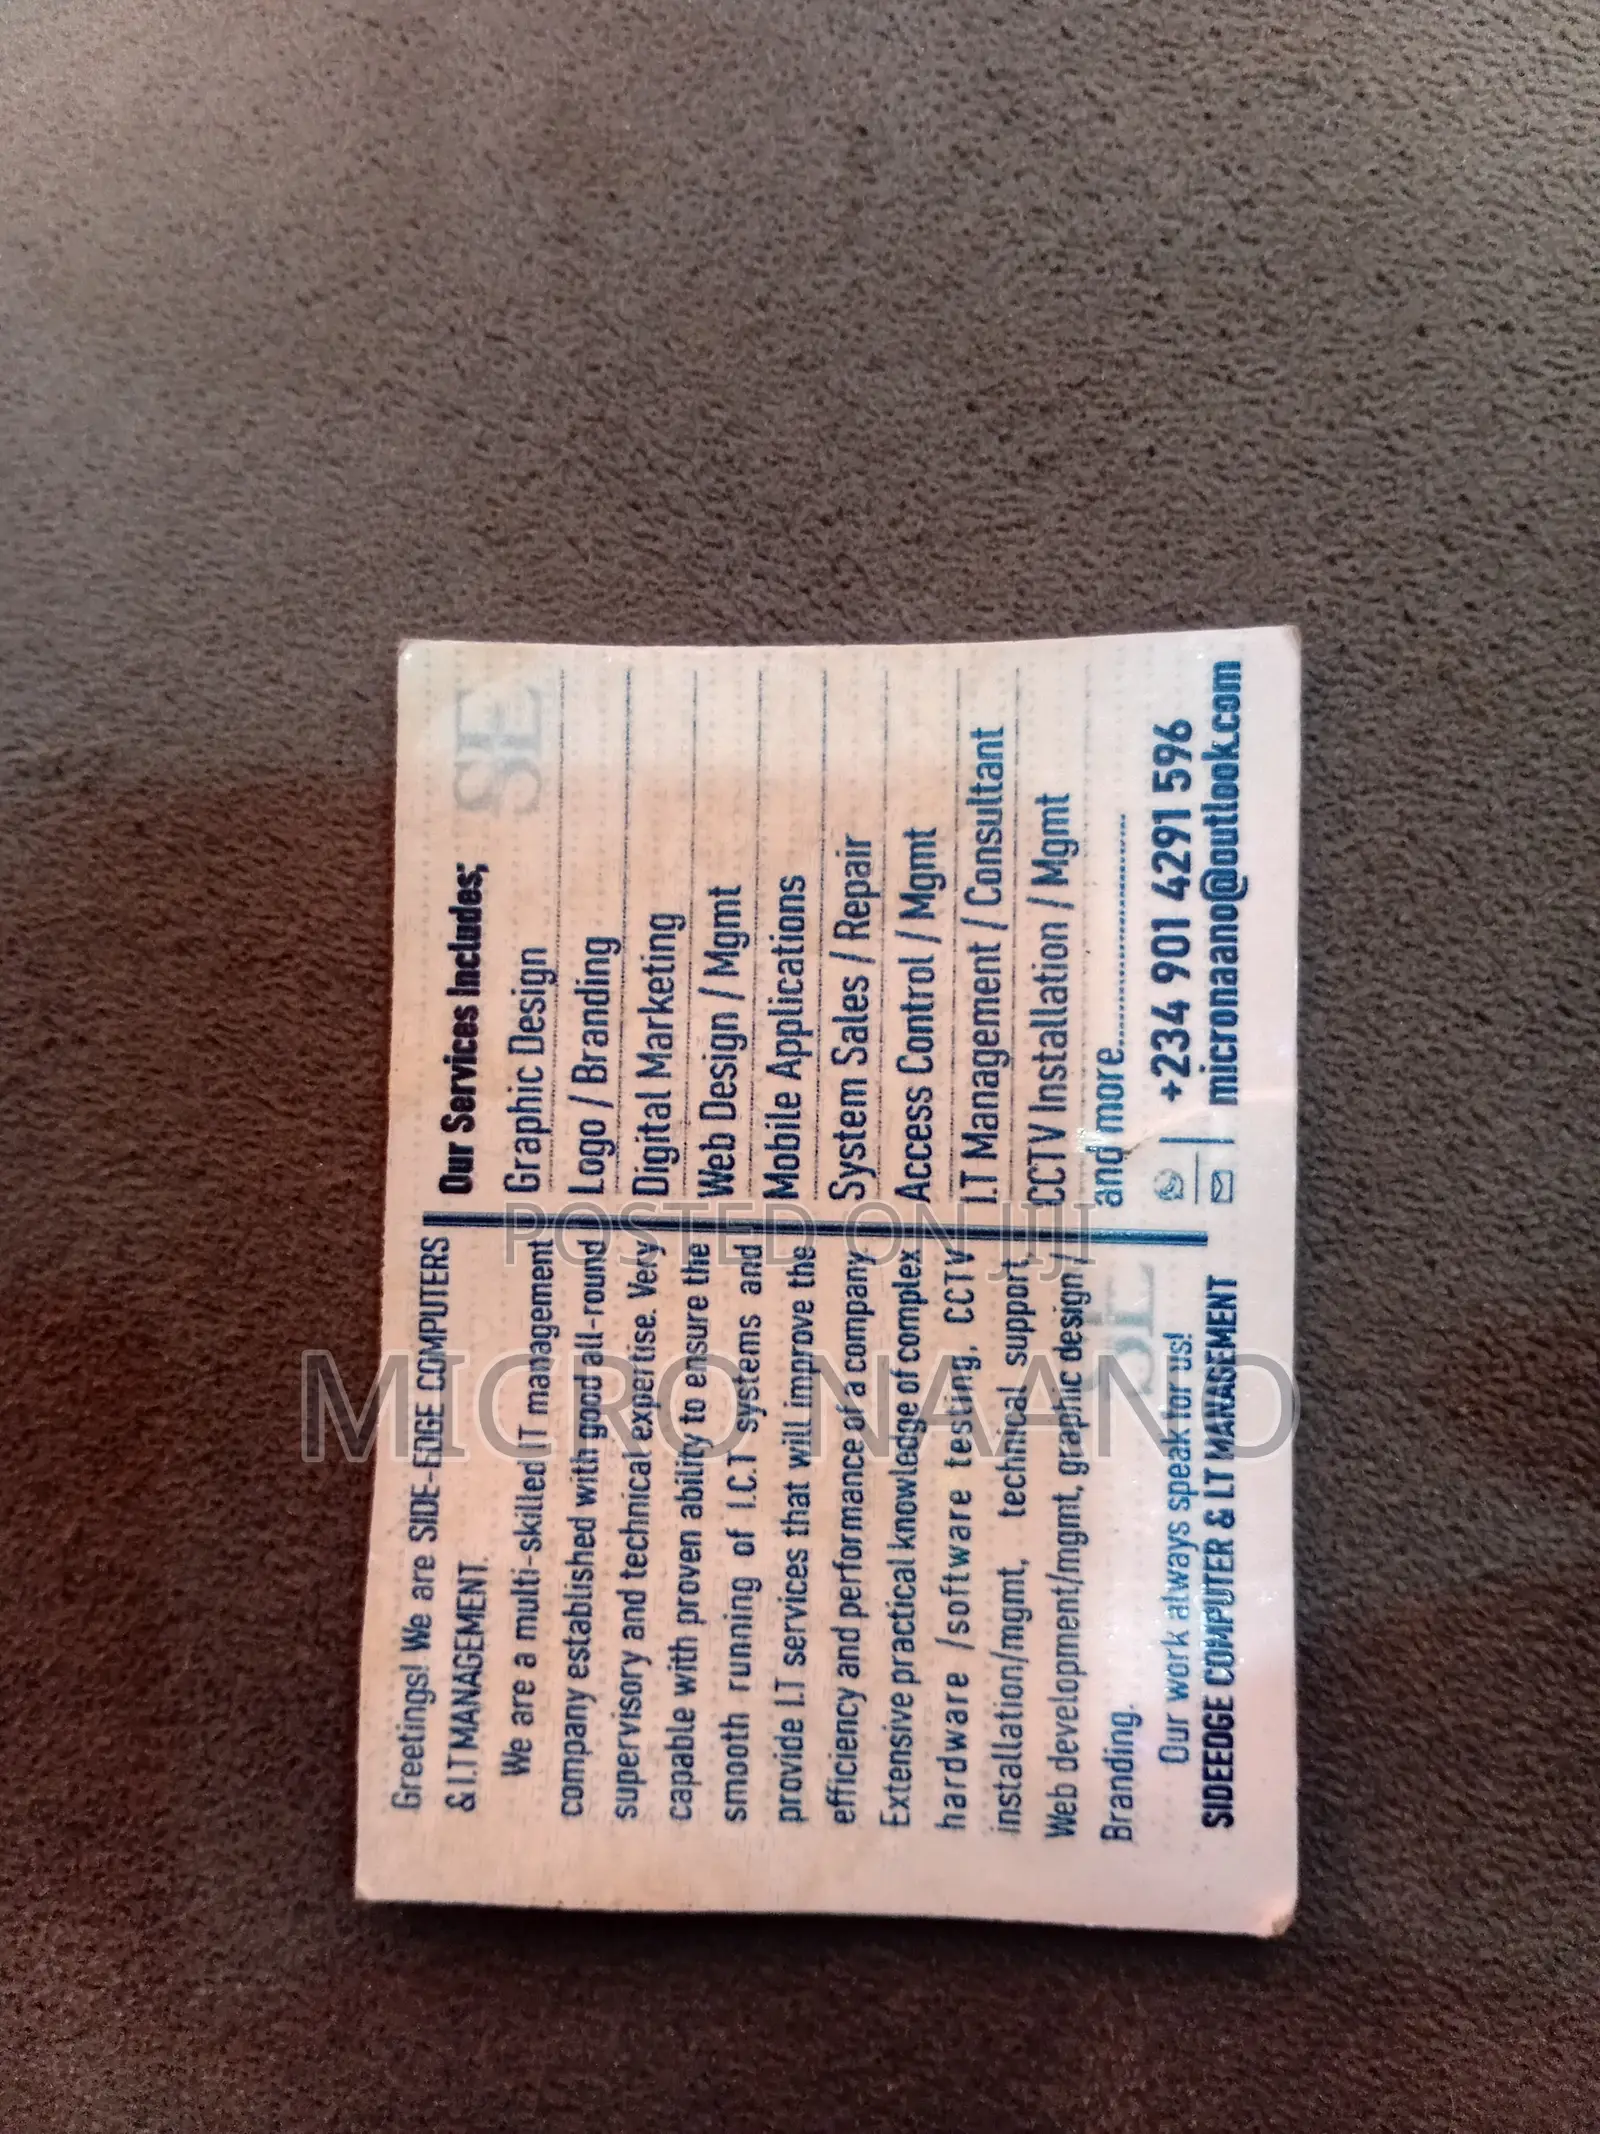 Greetings! We are SIDE-EDGE COMPUTERS
& I.T MANAGEMENT.
We are a multi-skilled IT management
company established with good all-round
supervisory and technical expertise. Very
capable with proven ability to ensure the
smooth running of I.C.T systems and
provide I.T services that will improve the
efficiency and performance of a company
Extensive practical knowledge of complex
hardware /software testing, CCTV
installation/mgmt, technical support,
Web development/mgmt, graphic design /
Branding.
Our work always speak for us!
SIDEEDGE COMPUTER & I.T MANAGEMENT
SE
Our Services Includes;
SE
Graphic Design
Logo / Branding
Digital Marketing
Web Design / Mgmt
Mobile Applications
System Sales / Repair
Access Control / Mgmt
I.T Management / Consultant
CCTV Installation / Mgmt
and more..............................
+234 901 4291 596
micronaano@outlook.com
POSTED ON JIJI
MICRO NAANO